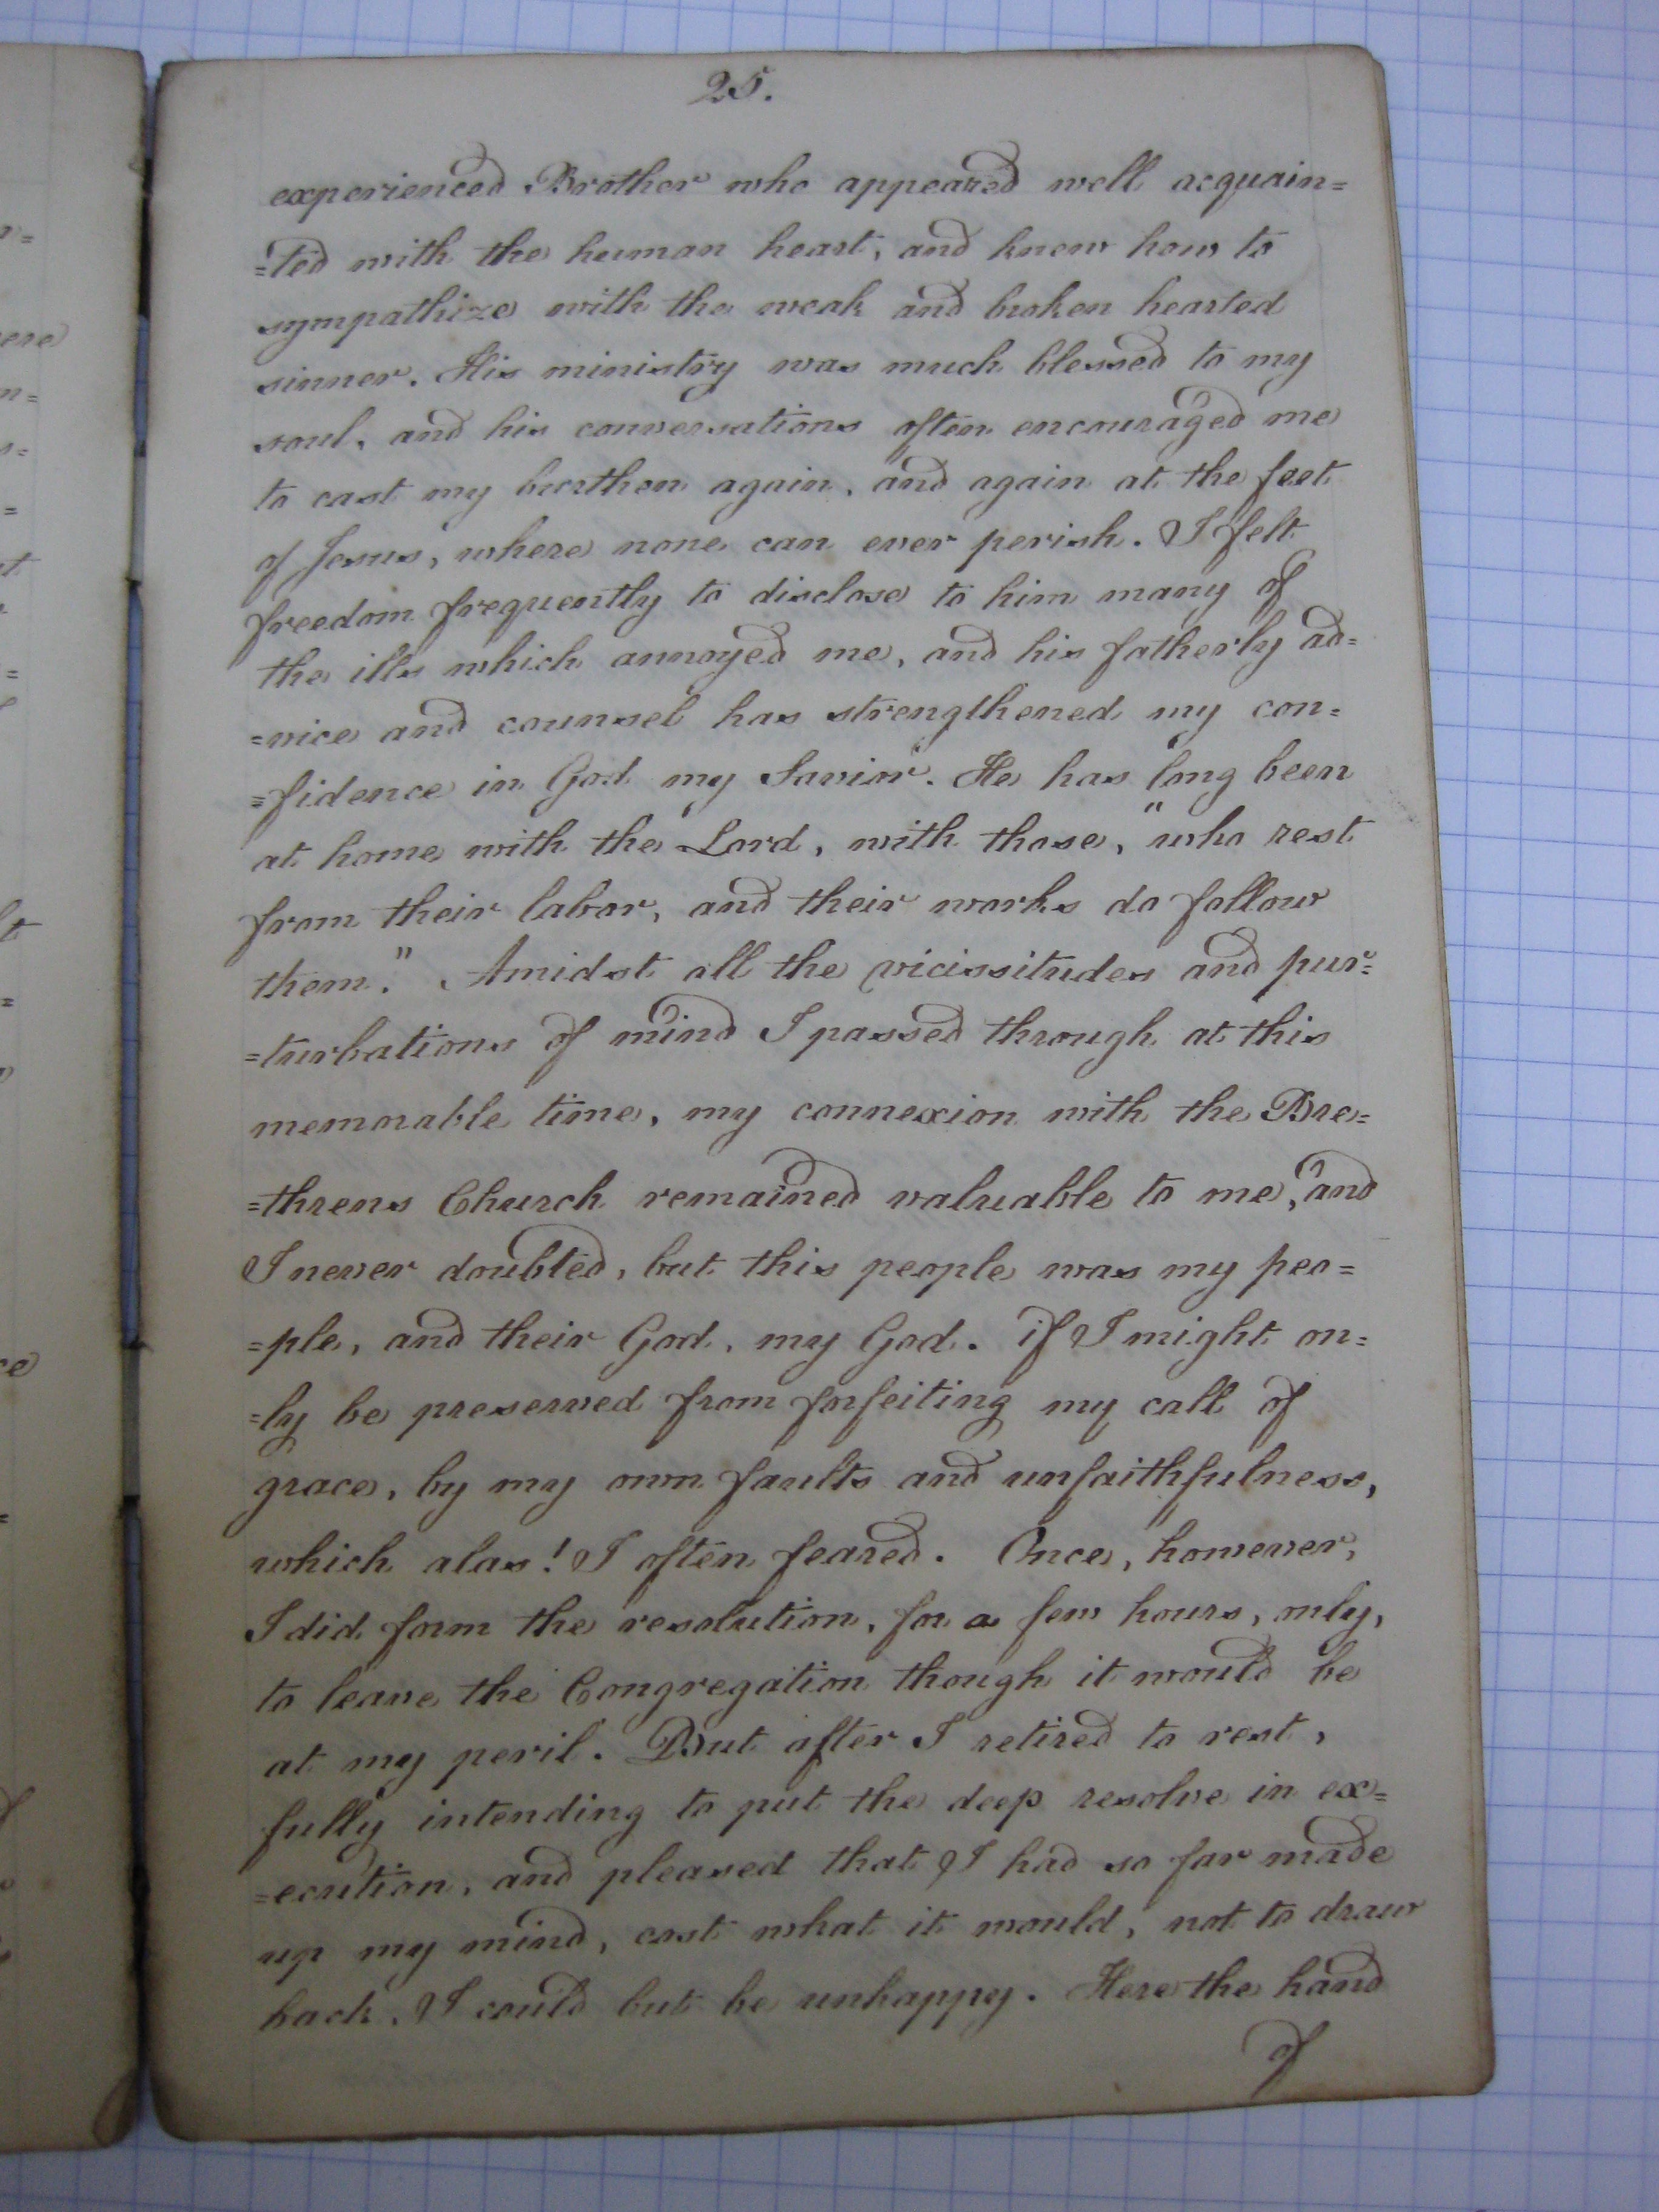 25.
experienced Brother who appeared well acquain=
=ted with the human heart, and knew how to
sympathize with the weak and broken hearted
sinner. His ministry was much blessed to my
soul, and his conversations often encouraged me
to cast my burthen again, and again at the feet
of Jesus, where none can ever perish. I felt
freedom frequently to disclose to him many of
the ills which annoyed me, and his fatherly ad=
=vice and counsel has strengthened my con=
=fidence in God my Savior. He has long been
at home with the Lord, with those, "who rest
from their labor, and their works do follow
them." Amidst all the vicissitudes and pur=
=turbations of mind I passed through at this
memorable time, my connexion with the Bre=
=threns Church remained valuable to me, and
I never doubted, but this people was my peo=
=ple, and their God, my God. if I might on=
=ly be preserved from forfeiting my call of
grace, by my own faults and unfaithfulness,
which alas! I often feared. Once, however,
I did form the resolution, for a few hours, only,
to leave the Congregation though it would be
at my peril. But after I retired to rest,
fully intending to put the deep resolve in ex=
=ecution, and pleased that I had so far made
up my mind, cost what it would, not to draw
back, I could but be unhappy. Here the hand
of